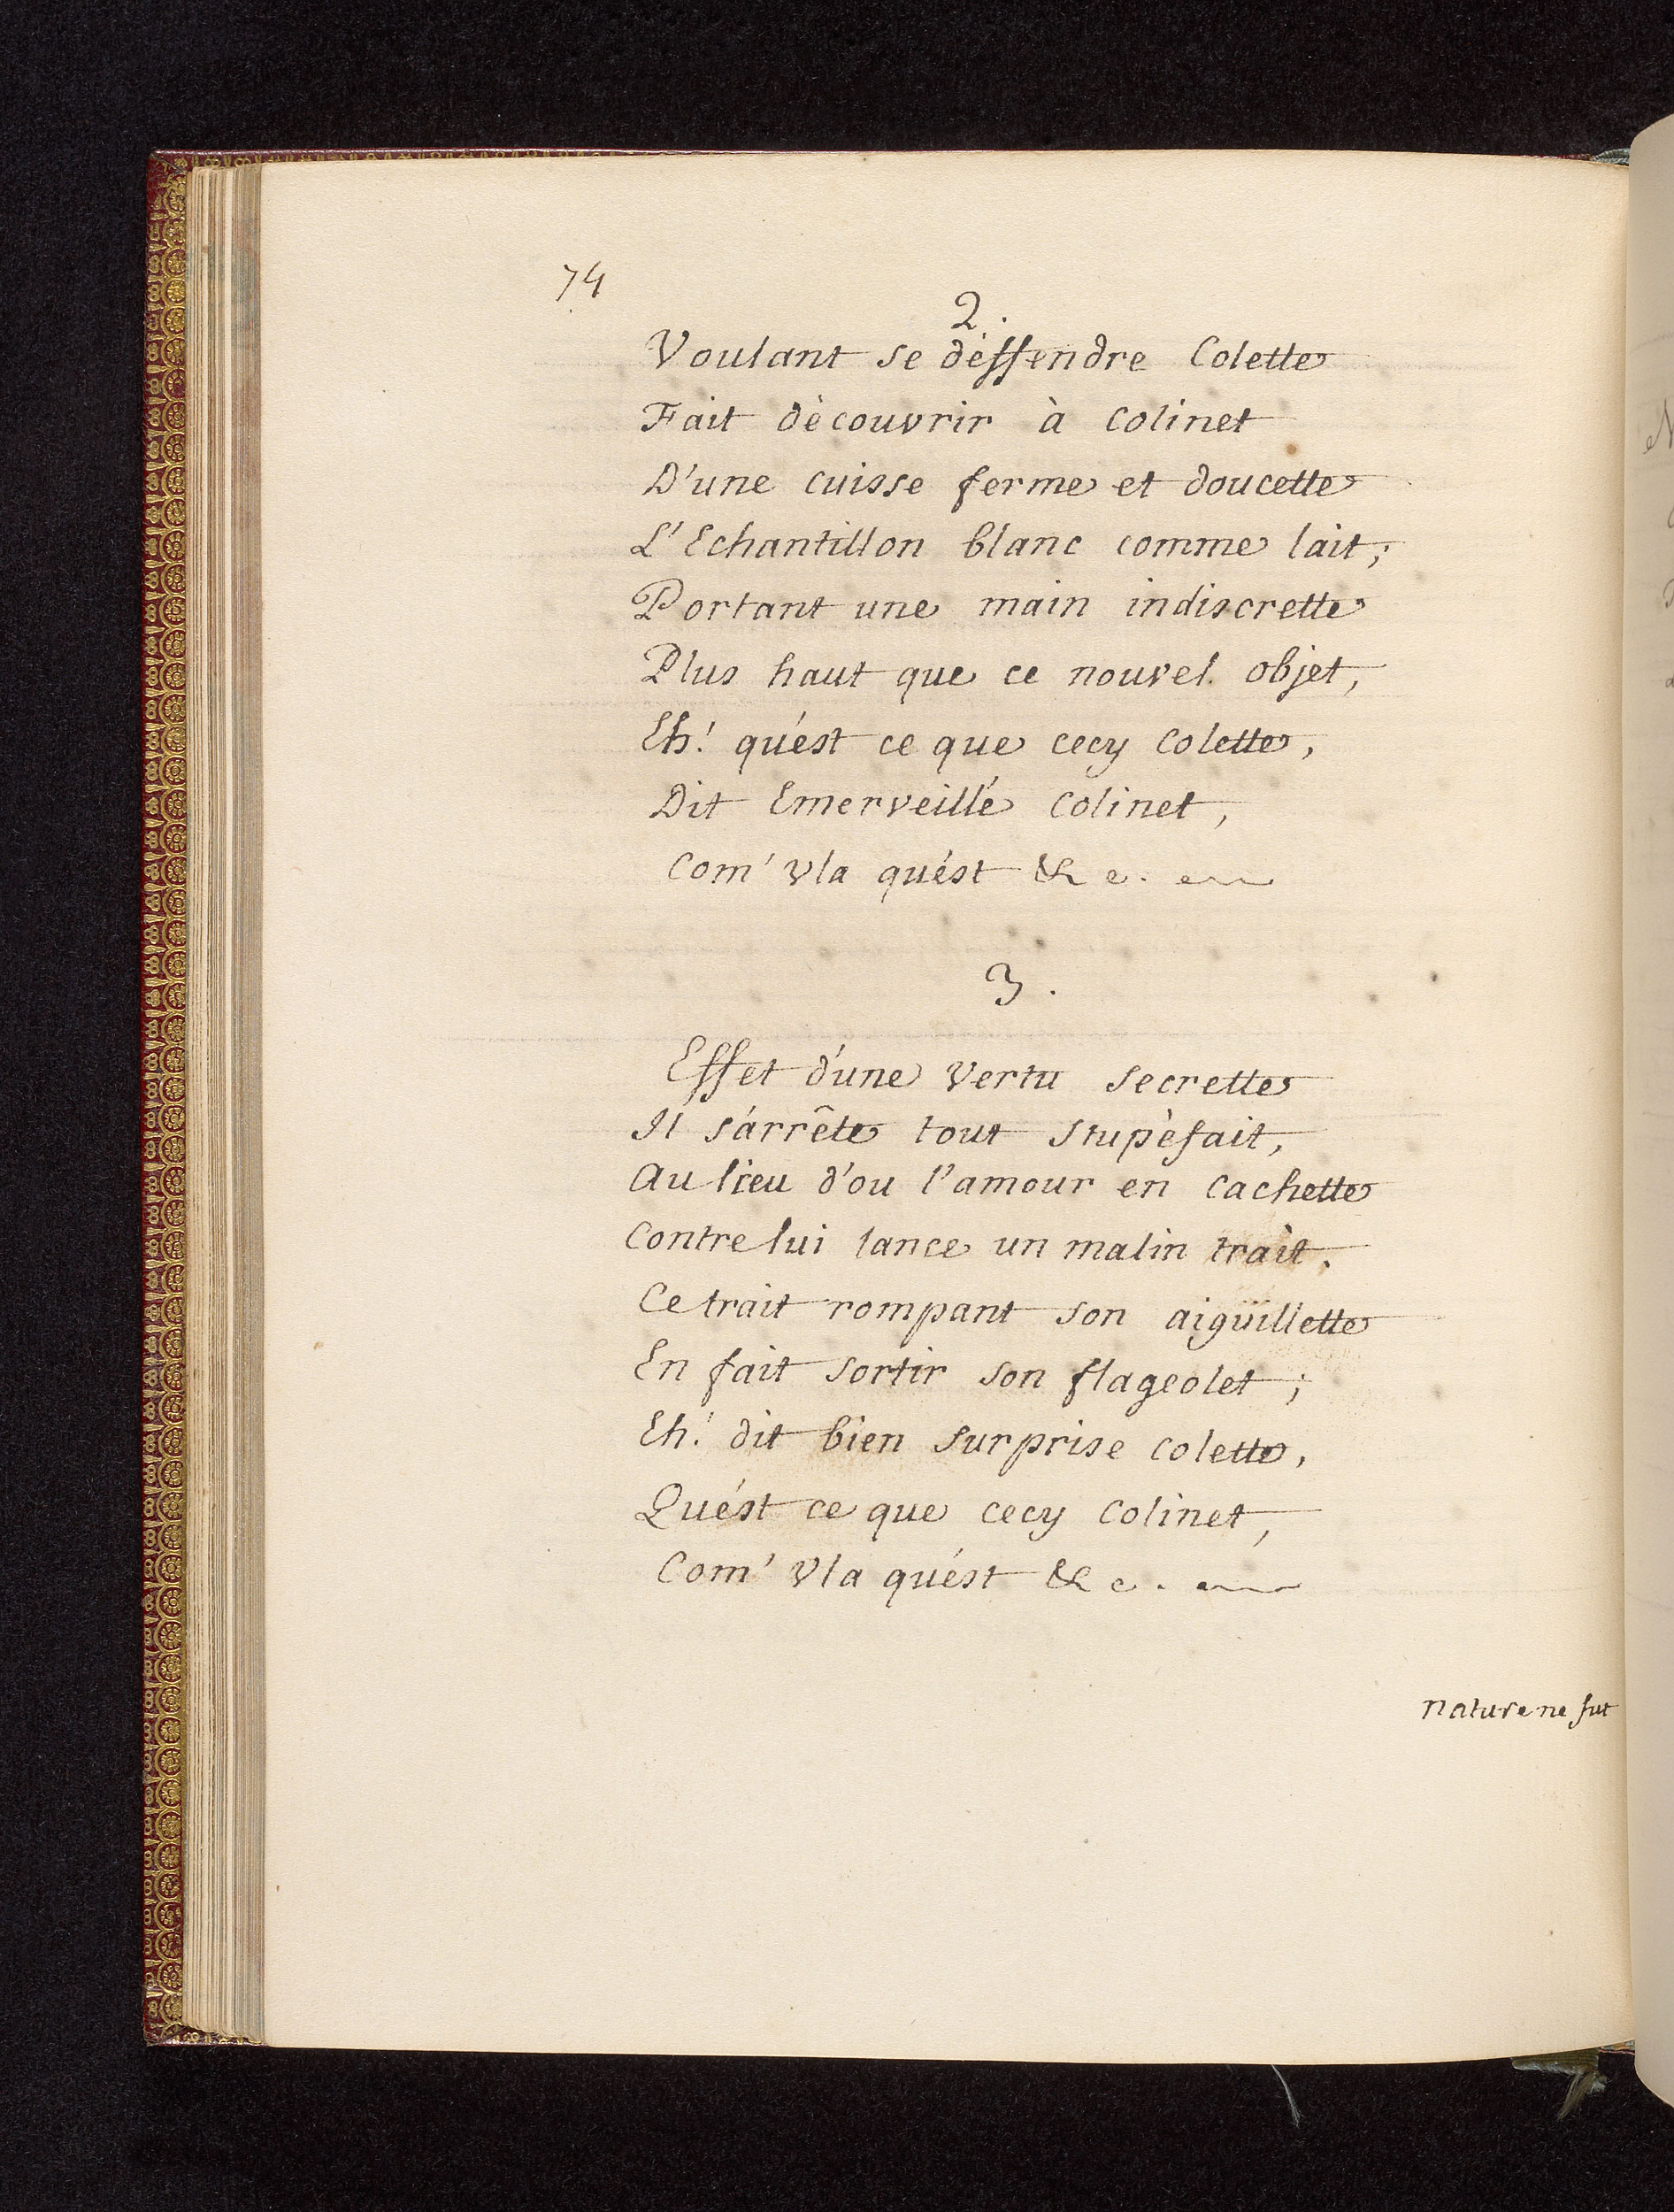 74
2.
Voulant se déffendre Colette
Fait dècouvrir à Colinet
D'une cuisse ferme et doucette
L'Echantillon blanc comme lait;
Portant une main indiscrette
Plus haut que ce nouvel objet,
Eh! qu'ést ce que cecy Colette,
Dit Emerveillé Colinet,
Com' vla qu'ést &c.
3.
Effet d'une vertu secrette
Il s'arrête tout stupèfait,
Au lieu d'ou l'amour en cachette
Contre lui lance un malin trait.
Ce trait rompant son aiguillette
En fait sortir son flageolet;
Eh! dit bien surprise Colette,
Qu'ést ce que cecy Colinet,
Com' vla qu'ést &c.
nature ne fut